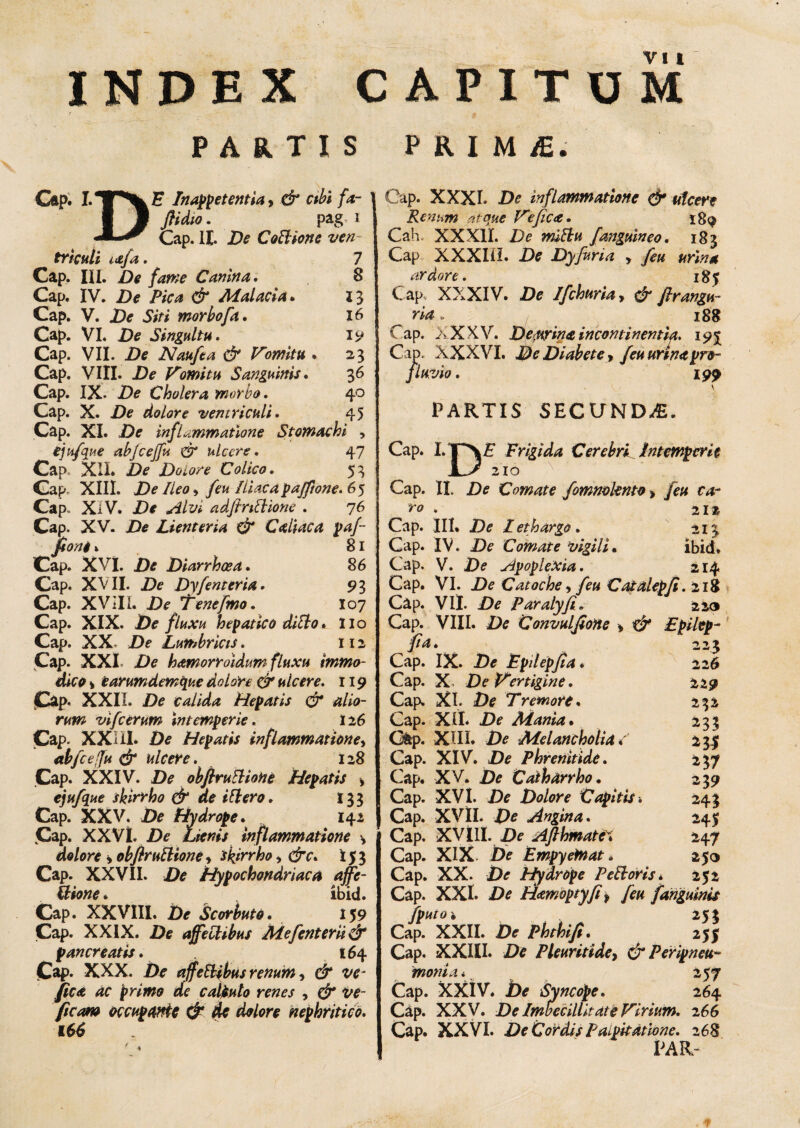 VII
INDEX CAPITUM
PARTIS PRIMÆ.
Cap. I. DE Inappetentia, & cibi fa-
stidio. pag. 1
Cap. II. De Coctione ven-
triculi læsa. 7
Cap. III. De fame Canina. 8
Cap. IV. De Pica & Malacia. 13
Cap. V. De Siti morbosa. 16
Cap. VI. De Singultu. 19
Cap. VII. De Nausea & Vomitu. 23
Cap. VIII. De Vomitu Sanguinis. 36
Cap. IX. De Cholera morbo. 40
Cap. X. De dolore ventriculi. 45
Cap. XI. De inflammatione Stomachi,
ejusque abscessu & ulcere. 47
Cap. XII. De Dolore Colico. 53
Cap. XIII. De Ileo, seu Iliaca passione. 65
Cap. XIV. De Alvi adstrictione. 76
Cap. XV. De Lienteria & Cæliaca pas-
sione. 81
Cap. XVI. De Diarrhœa. 86
Cap. XVII. De Dysenteria. 93
Cap. XVIII. De Tenesmo. 107
Cap. XIX. De fluxu hepatico dicto. 110
Cap. XX. De Lumbricis. 112
Cap. XXI. De hæmorroidum fluxu immo-
dico, earumdemque dolore & ulcere. 119
Cap. XXII. De calida Hepatis & alio-
rum viscerum intemperie. 126
Cap. XXIII. De Hepatis inflammatione,
abscessu & ulcere. 128
Cap. XXIV. De obstructione Hepatis,
ejusque skirrho & de ictero. 133
Cap. XXV. De Hydrope. 142
Cap. XXVI. De Lienis inflammatione,
dolore, obstructione, skirrho, &c. 153
Cap. XXVII. De Hypochondriaca affe-
ctione. ibid.
Cap. XXVIII. De Scorbuto. 159
Cap. XXIX. De affectibus Mesenterii &
pancreatis. 164
Cap. XXX. De affectibus renum, & ve-
sicæ ac primo de calculo renes, & ve-
sicam occupante & de dolore nephritico.
166
Cap. XXXI. De inflammatione & ulcere
Renum atque Vesicæ. 189
Cah. XXXII. De mictu sanguineo. 183
Cap. XXXIII. De Dysuria, seu urinæ
ardore. 185
Cap. XXXIV. De Ischuria, & strangu-
ria. 188
Cap. XXXV. De urinæ incontinentia. 195
Cap. XXXVI. De Diabete, seu urinæ pro-
fluvio. 199
PARTIS SECUNDÆ.
Cap. I. DE Frigida Cerebri Intemperie
210
Cap. II. De Comate somnolento, seu ca-
ro. 212
Cap. III. De Lethargo. 213
Cap. IV. De Comate vigili. ibid.
Cap. V. De Apoplexia. 214
Cap. VI. De Catoche, seu Catalepsi. 218
Cap. VII. De Paralysi. 220
Cap. VIII. De Convulsione, & Epilep-
sia. 223
Cap. IX. De Epilepsia. 226
Cap. X. De Vertigine. 229
Cap. XI. De Tremore. 232
Cap. XII. De Mania. 233
Cap. XIII. De Melancholia. 235
Cap. XIV. De Phrenitide. 237
Cap. XV. De Catharrho. 239
Cap. XVI. De Dolore Capitis. 243
Cap. XVII. De Angina. 245
Cap. XVIII. De Asthmate. 247
Cap. XIX. De Empyemat. 250
Cap. XX. De Hydrope Pectoris. 252
Cap. XXI. De Hæmoptysi, seu sanguinis
sputo. 253
Cap. XXII. De Phthisi. 255
Cap. XXIII. De Pleuritide, & Peripneu-
monia. 257
Cap. XXIV. De Syncope. 264
Cap. XXV. De Imbecillitate Virium. 266
Cap. XXVI. De Cordis Palpitatione. 268
PAR-